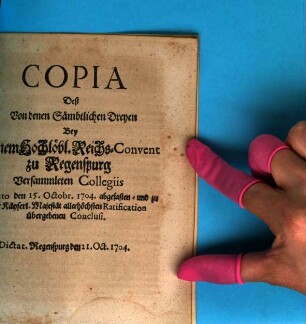 COPIA
Deß
Von denen Sämbtlichen Dreyen
Bey
Hochlöbl. Reichs-Convent
zu Regenspurg
Versammleten Collegiis
den 15. Octobr. 1704. abgefasten- und zu
Käyserl. Majestät allerhöchsten Ratification
übergebenen Conclusi.
Dictat. Regenspurg den 21. Oct. 1704.